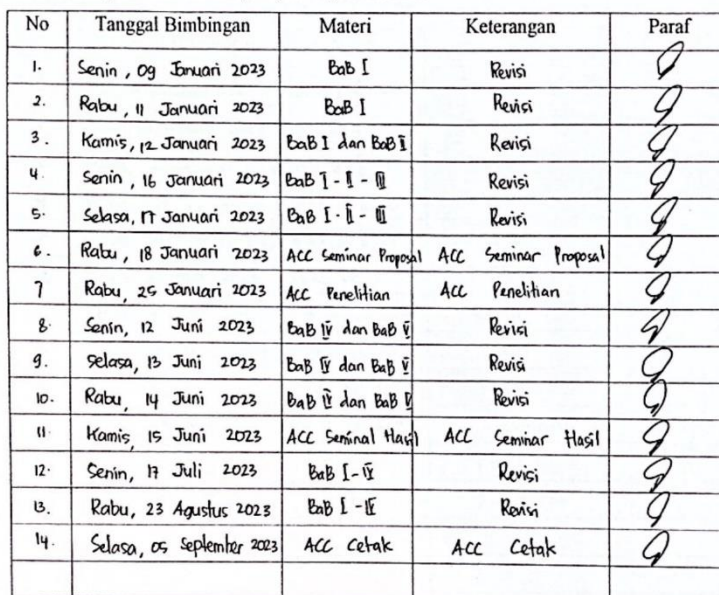 No Tanggal Bimbingan Materi Keterangan Paraf
1. Senin, 09 Januari 2023 BaB I Revisi
2. Rabu, 11 Januari 2023 BaB I Revisi
3. Kamis, 12 Januari 2023 BaB I dan BaB II Revisi
4. Senin, 16 Januari 2023 BaB I - II - III Revisi
5. Selasa, 17 Januari 2023 BaB I - II - III Revisi
6. Rabu, 18 Januari 2023 ACC Seminar Proposal ACC Seminar Proposal
7 Rabu, 25 Januari 2023 ACC Penelitian ACC Penelitian
8. Senin, 12 Juni 2023 BaB IV dan BaB V Revisi
9. Selasa, 13 Juni 2023 BaB IV dan BaB V Revisi
10. Rabu, 14 Juni 2023 BaB IV dan BaB V Revisi
11. Kamis, 15 Juni 2023 ACC Seminal Hasil ACC Seminar Hasil
12. Senin, 17 Juli 2023 BaB I - IV Revisi
13. Rabu, 23 Agustus 2023 BaB I - IV Revisi
14. Selasa, 05 September 2023 ACC Cetak ACC Cetak